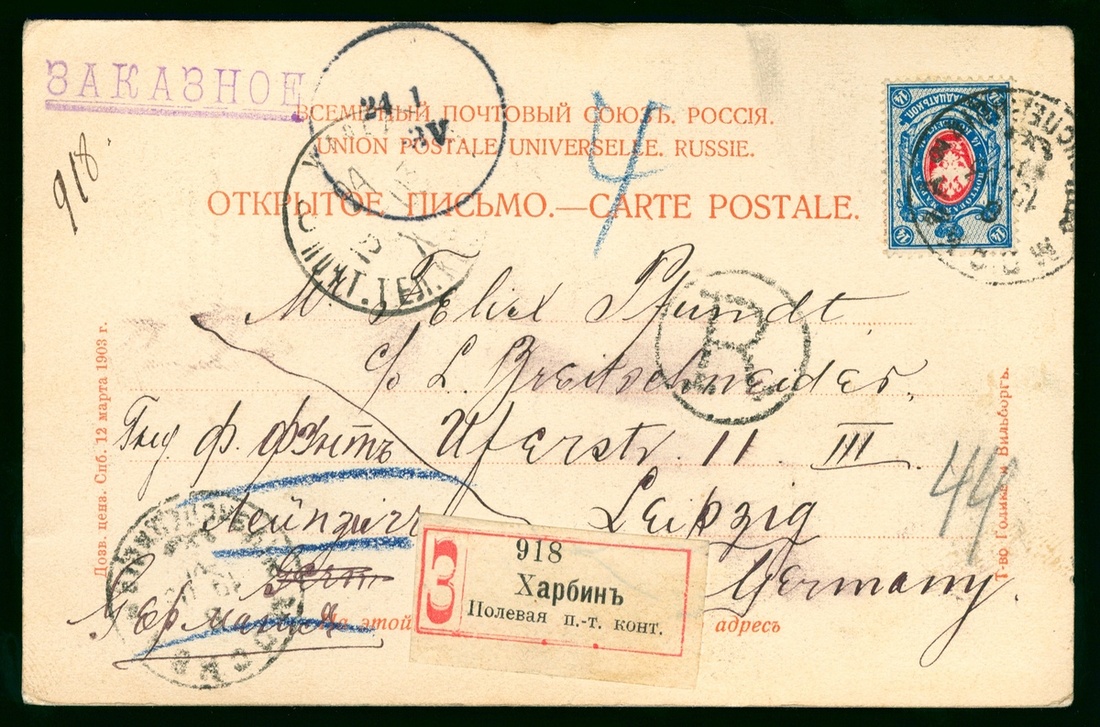 ЗАКАЗНОЕ
918
24 1
ВСЕМІРНЫЙ ПОЧТОВЫЙ СОЮЗЪ. РОССІЯ.
UNION POSTALE UNIVERSELLE. RUSSIE.
ОТКРЫТОЕ ПИСЬМО.—CARTE POSTALE.
4
14
ПОЧТ. ТЕЛ. К
Mr Felix Pfundt
R
c/o L. Breitschneider,
Uferstr. 11 III
Лейпцигъ
Leipzig
Германия
Germany
44
918
З
Харбинъ
Полевая п.-т. конт.
На этой адресъ
МОСКВА
Дозв. цена. Спб. 12 марта 1903 г.
Т-во Голике и Вильборгъ.